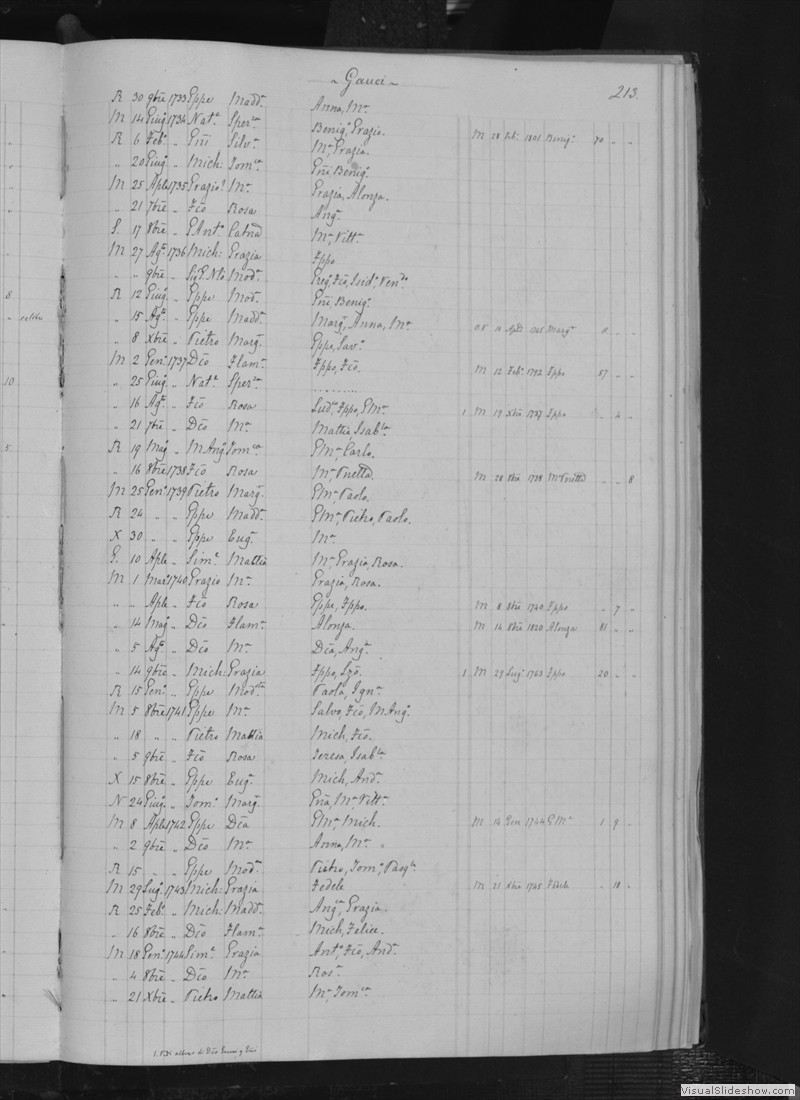 ~ Gauci ~
213.
R 30 9bre 1733 Gppe Madda. Anna, Ma.
M 14 Giug. 1734 Nata. Sperza. Benigª, Grazio. M 28 Feb. 1801 Benigª 70 " "
R 6 Feb. " Gni Silva. Ma, Grazia.
" 20 Giug. " Mich: Tomca. Gni, Benigª.
M 25 Aple 1735 Grazio Ma. Grazia, Alonza.
" 21 7bre " Fco Rosa Angª.
S. 17 8bre " G.Anto Catna Ma, Vitta.
M 27 Agto 1736 Mich: Grazia Fppo
" " 9bre " Madª. Greg, Fco, Isido,
R 12 Giug. " Gppe Modª. Gni, Benigª.
" 15 Agto " Gppe Madda. Marga, Anna, Ma.
" 8 Xbre " Pietro Marga. Gppe, Sav.
M 2 Genº 1737 Dco Flamª. Fppo, Fco. M 12 Feb. 1792 Fppo 57 " "
" 25 Giug. " Nata. Sperza. ..........
" 16 Agto " Fco Rosa Ludca, Fppo, GMa. 1 M 19 Xbre 1737 Fppo " 4 "
" 21 7bre " Dco Ma. Mattia, Isabla.
R 19 Mag. " M.Angº Tomca. GMa, Carlo.
" 16 8bre 1738 Fco Rosa Ma, Vnetta. M 28 8bre 1738 Ma Vnetta " " 8
M 25 Genº 1739 Pietro Marga. GMa, Paolo.
R 24 " " Gppe Madda. GMa, Pietro, Paolo.
X 30 " " Gppe Eugª. Ma.
G. 10 Aple " Simº. Mattia Ma, Grazia, Rosa.
M 1 Mar. 1740 Grazio Ma. Grazia, Rosa.
" " Aple " Fco Rosa Gppe, Fppo. M 8 8bre 1740 Fppo " 7 "
" 14 Mag. " Dco Flamª. Alonza. M 14 8bre 1820 Alonza 81 " "
" 5 Agto " Dco Ma. Dca, Angª.
" 14 9bre " Mich: Grazia Fppo, Lzo. 1 M 29 Lug. 1763 Fppo 20 " "
R 15 Genº " Gppe Modta. Paola, Igna.
M 5 8bre 1741 Gppe Ma. Salvo, Fco, M.Angª.
" 18 " " Pietro Mattia Mich, Fco.
" 5 9bre " Fco Rosa Teresa, Isabla.
X 15 8bre " Gppe Eugª. Mich, Anda.
N 24 Giug. " Tomº. Marga. Gna, Ma, Vitta.
M 8 Aple 1742 Gppe Dca GMa, Mich. M 14 Gen 1744 GMa 1 9 "
" 2 9bre " Dco Ma. Anna, Ma "
R 15 " " Gppe Modta. Pietro, Tomº, Pasqle.
M 29 Lug. 1743 Mich: Grazia Fedele M 21 Xbre 1745 Fedele " 18 "
R 25 Feb. " Mich: Madda. Angca, Grazia.
" 16 8bre " Dco Flamª. Mich, Felice.
M 18 Genº 1744 Simº. Grazia Anto, Fco, Anda.
" 4 8bre " Dco Ma. Rosª.
" 21 Xbre " Pietro Mattia Ma, Tomca.
VisualSlideshow.com